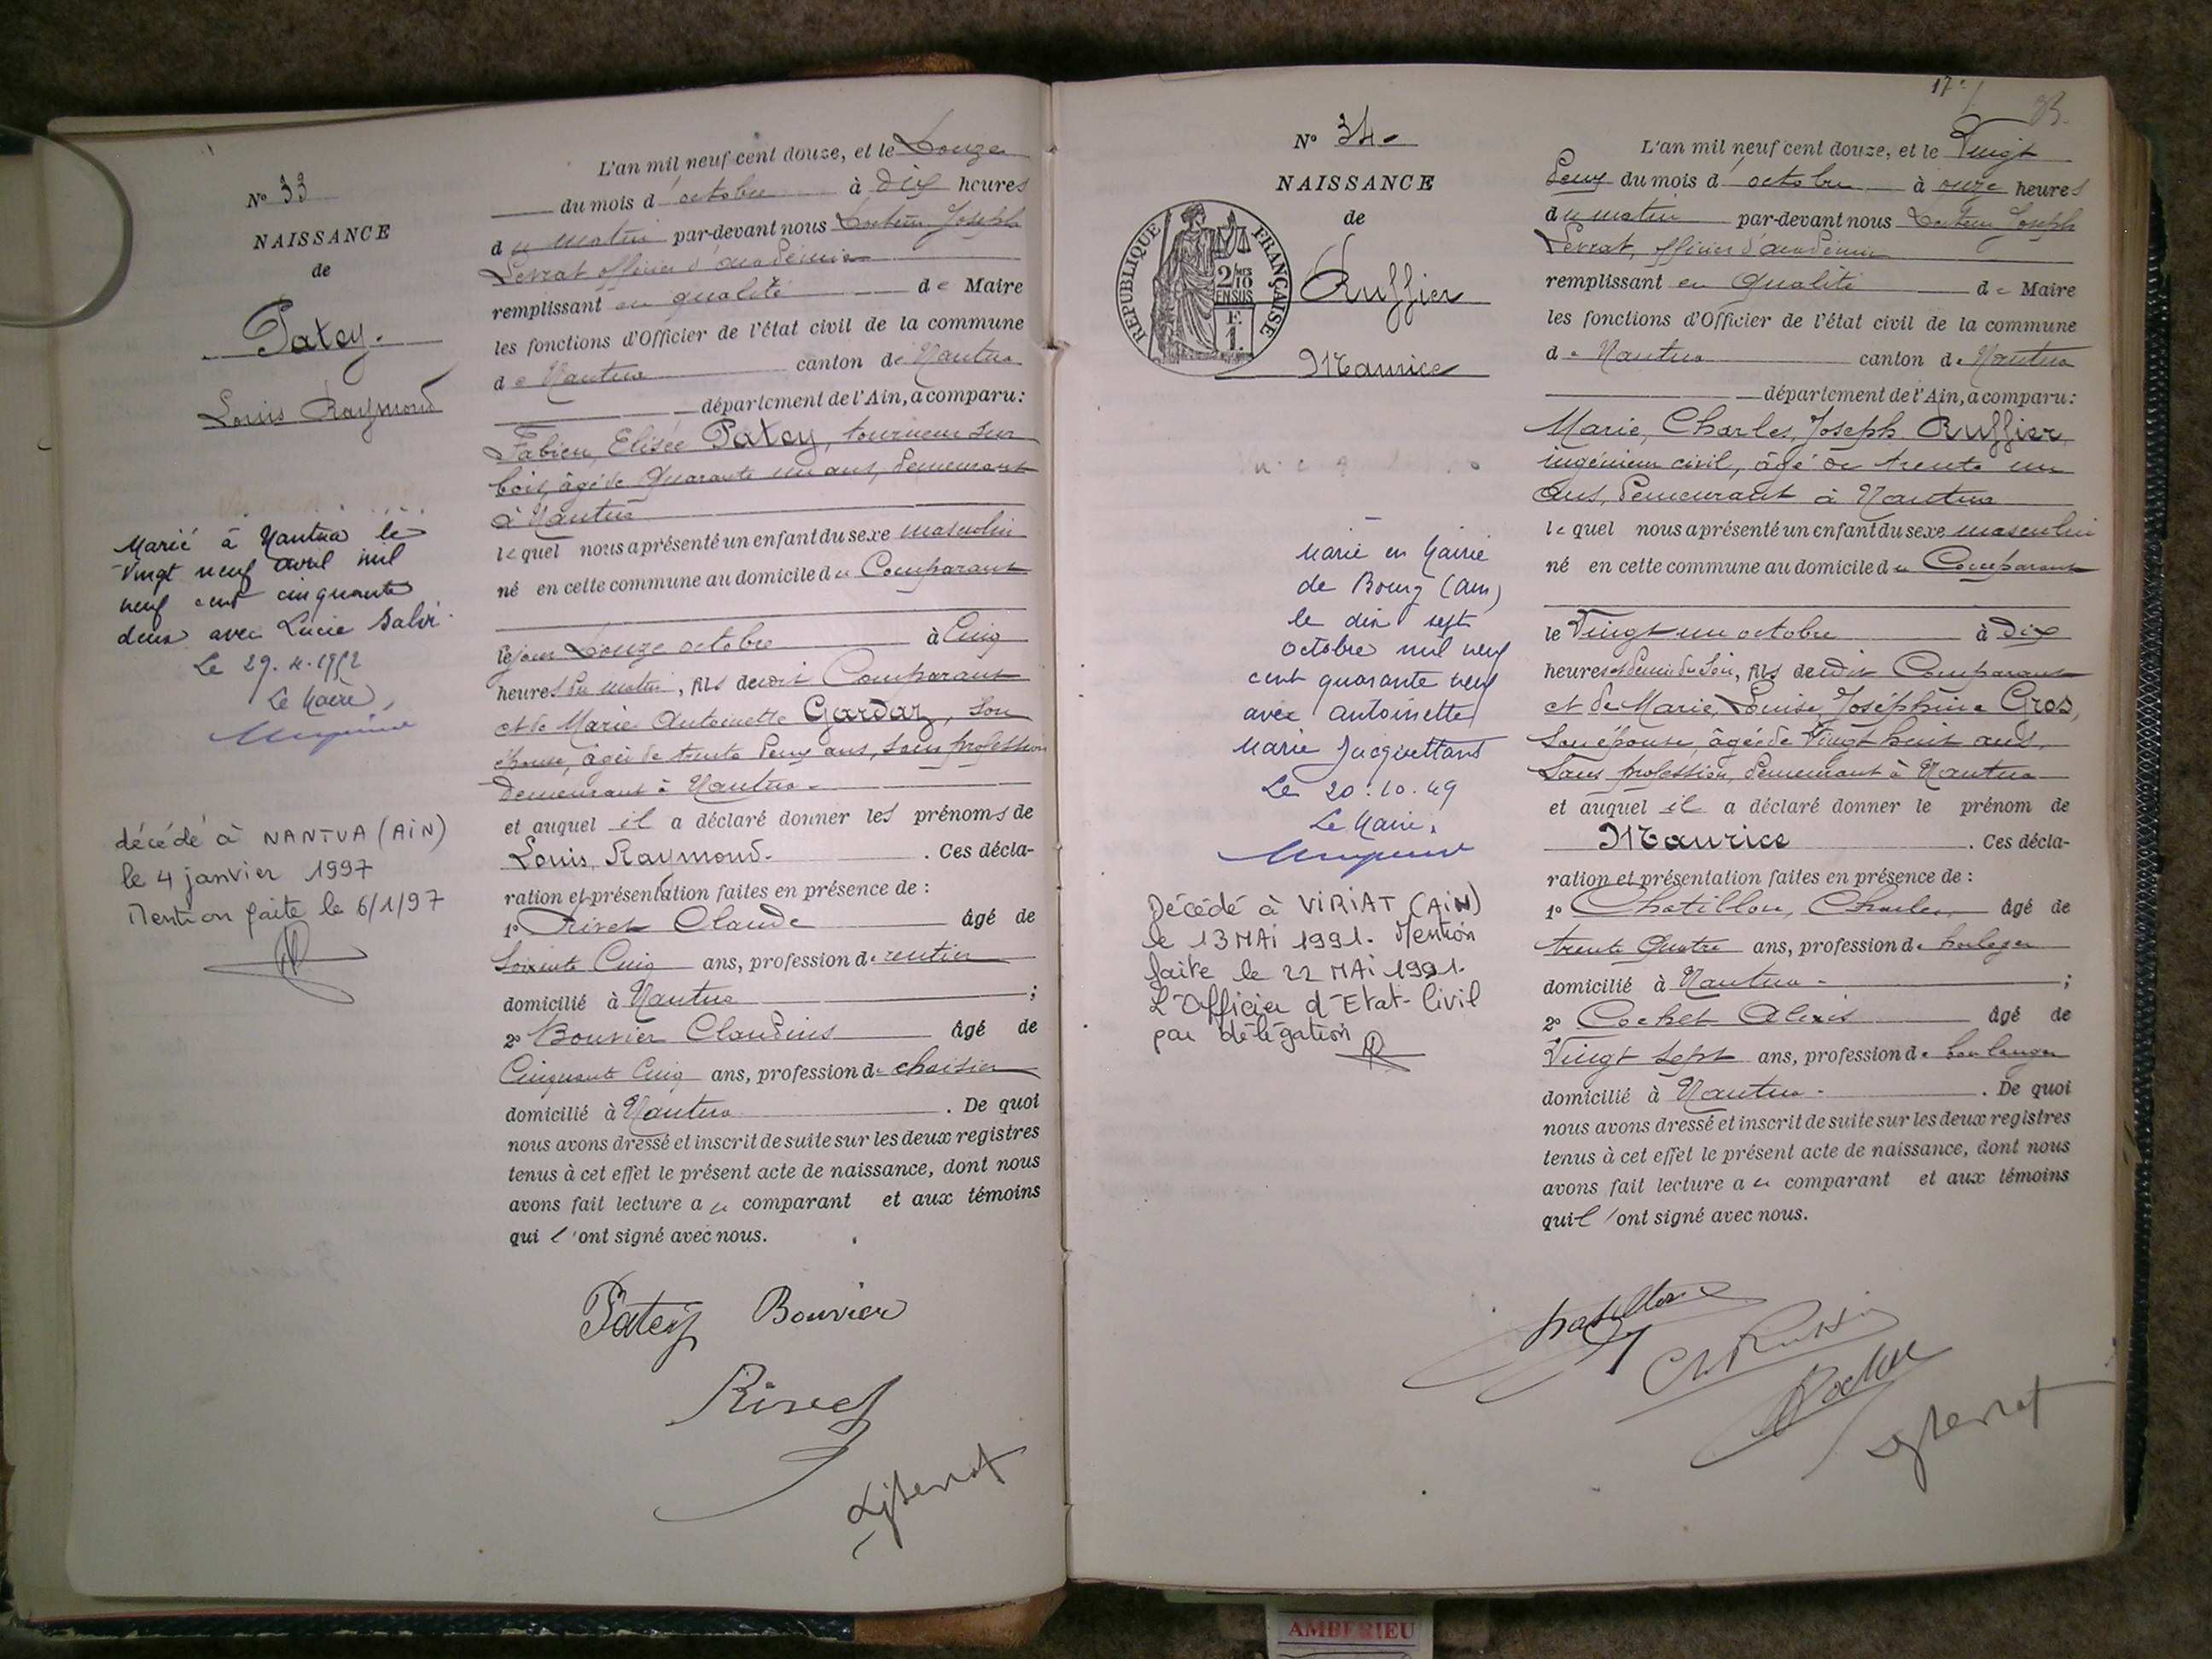 N° 33
NAISSANCE
de
Patey.
Louis Raymond
Marié à Nantua le
vingt neuf avril mil
neuf cent cinquante
deux avec Lucie Salvi
Le 29.4.1952
Le Maire,
décédé à NANTUA (AIN)
le 4 janvier 1997
Mention faite le 6/1/97
L'an mil neuf cent douze, et le Douze
du mois d'octobre à Dix heures
du matin par-devant nous Docteur Joseph
Levrat officier d'académie
remplissant en qualité de Maire
les fonctions d'Officier de l'état civil de la commune
de Nantua canton de Nantua
département de l'Ain, a comparu :
Fabien, Elisée Patey, tourneur sur
bois, âgé de quarante un ans, demeurant
à Nantua
lequel nous a présenté un enfant du sexe masculin
né en cette commune au domicile du Comparant
le jour Douze octobre à Cinq
heures du matin, fils de dit Comparant
et de Marie Antoinette Gardaz, son
épouse, âgée de trente deux ans, sans profession
demeurant à Nantua.
et auquel il a déclaré donner les prénoms de
Louis, Raymond. . Ces décla-
ration et présentation faites en présence de :
1° Rivet Claude âgé de
Soixante Cinq ans, profession de rentier
domicilié à Nantua ;
2° Bouvier Claudius âgé de
Cinquante Cinq ans, profession de chaisier
domicilié à Nantua . De quoi
nous avons dressé et inscrit de suite sur les deux registres
tenus à cet effet le présent acte de naissance, dont nous
avons fait lecture au comparant et aux témoins
qui l'ont signé avec nous.
Patey Bouvier
Rivet
Levrat
17e
33
N° 34.
NAISSANCE
de
RÉPUBLIQUE FRANÇAISE
2/10 MES
EN SUS
F.
1.
Ruffier
Maurice
Marié en Mairie
de Bourg (Ain)
le dix sept
octobre mil neuf
cent quarante neuf
avec Antoinette
Marie Jacquettant
Le 20.10.49
Le Maire.
Décédé à VIRIAT (AIN)
le 13 MAI 1991. Mention
faite le 22 MAI 1991.
L'Officier d'Etat-Civil
par délégation
L'an mil neuf cent douze, et le Vingt
Deux du mois d'octobre à onze heures
du matin par-devant nous Docteur Joseph
Levrat, officier d'académie
remplissant en qualité de Maire
les fonctions d'Officier de l'état civil de la commune
de Nantua canton de Nantua
département de l'Ain, a comparu :
Marie, Charles, Joseph Ruffier,
ingénieur civil, âgé de trente un
ans, demeurant à Nantua
lequel nous a présenté un enfant du sexe masculin
né en cette commune au domicile du Comparant
le Vingt un octobre à Dix
heures et demie du soir, fils de dit Comparant
et de Marie, Louise, Joséphine Gros,
son épouse, âgée de Vingt huit ans,
Sans profession, demeurant à Nantua
et auquel il a déclaré donner le prénom de
Maurice . Ces décla-
ration et présentation faites en présence de :
1° Chatillon, Charles, âgé de
trente Quatre ans, profession de horloger
domicilié à Nantua ;
2° Cochet Alexis âgé de
Vingt Sept ans, profession de boulanger
domicilié à Nantua . De quoi
nous avons dressé et inscrit de suite sur les deux registres
tenus à cet effet le présent acte de naissance, dont nous
avons fait lecture au comparant et aux témoins
qui l'ont signé avec nous.
Chatillon
Ch Ruffier
Cochet
Levrat
AMBERIEU